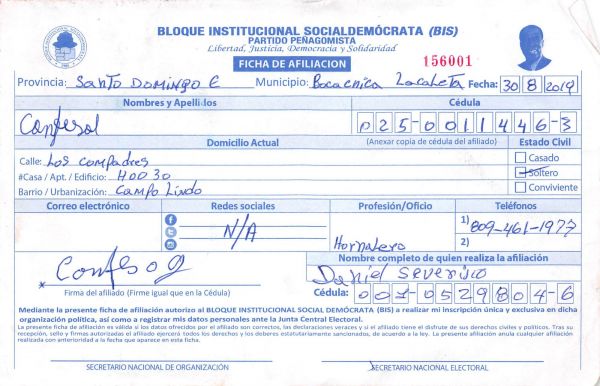 BLOQUE INSTITUCIONAL SOCIALDEMÓCRATA (BIS)
PARTIDO PEÑAGOMISTA
Libertad, Justicia, Democracia y Solidaridad
FICHA DE AFILIACION
156001
Provincia: Santo Domingo E Municipio: Bocachica Lacaleta Fecha: 30 8 2019
Nombres y Apellidos Cédula
Confesol 025-0011446-3
Domicilio Actual (Anexar copia de cédula del afiliado) Estado Civil
Calle: Los Compadres Casado
#Casa / Apt. / Edificio: H00 30 Soltero
Barrio / Urbanización: Campo Lindo Conviviente
Correo electrónico Redes sociales Profesión/Oficio Teléfonos
N/A Hornalero 1) 809-461-1977
2)
Nombre completo de quien realiza la afiliación
Daniel Severino
Firma del afiliado (Firme igual que en la Cédula) Cédula: 001-0529804-6
Mediante la presente ficha de afiliación autorizo al BLOQUE INSTITUCIONAL SOCIAL DEMÓCRATA (BIS) a realizar mi inscripción única y exclusiva en dicha
organización política, así como a registrar mis datos personales ante la Junta Central Electoral.
La presente ficha de afiliación es válida si los datos ofrecidos por el afiliado son correctos, las declaraciones veraces y si el afiliado tiene el disfrute de sus derechos civiles y políticos. Tras su
recepción, sello y firmas autorizadas el afiliado ejercerá todos los derechos y los deberes estatutariamente sancionados, de acuerdo a la ley. La presente afiliación anula cualquier afiliación
realizada con anterioridad a la fecha que aparece en esta ficha.
SECRETARIO NACIONAL DE ORGANIZACIÓN SECRETARIO NACIONAL ELECTORAL